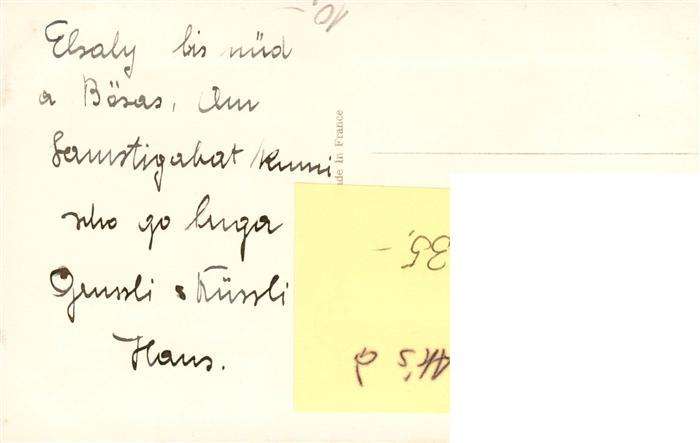 10,-
Elsaly bis nüd
a Bösas. Am
Samstigabat kumi
scho go luga
Grussli & Küssli
Hans.
ade in France
35,-